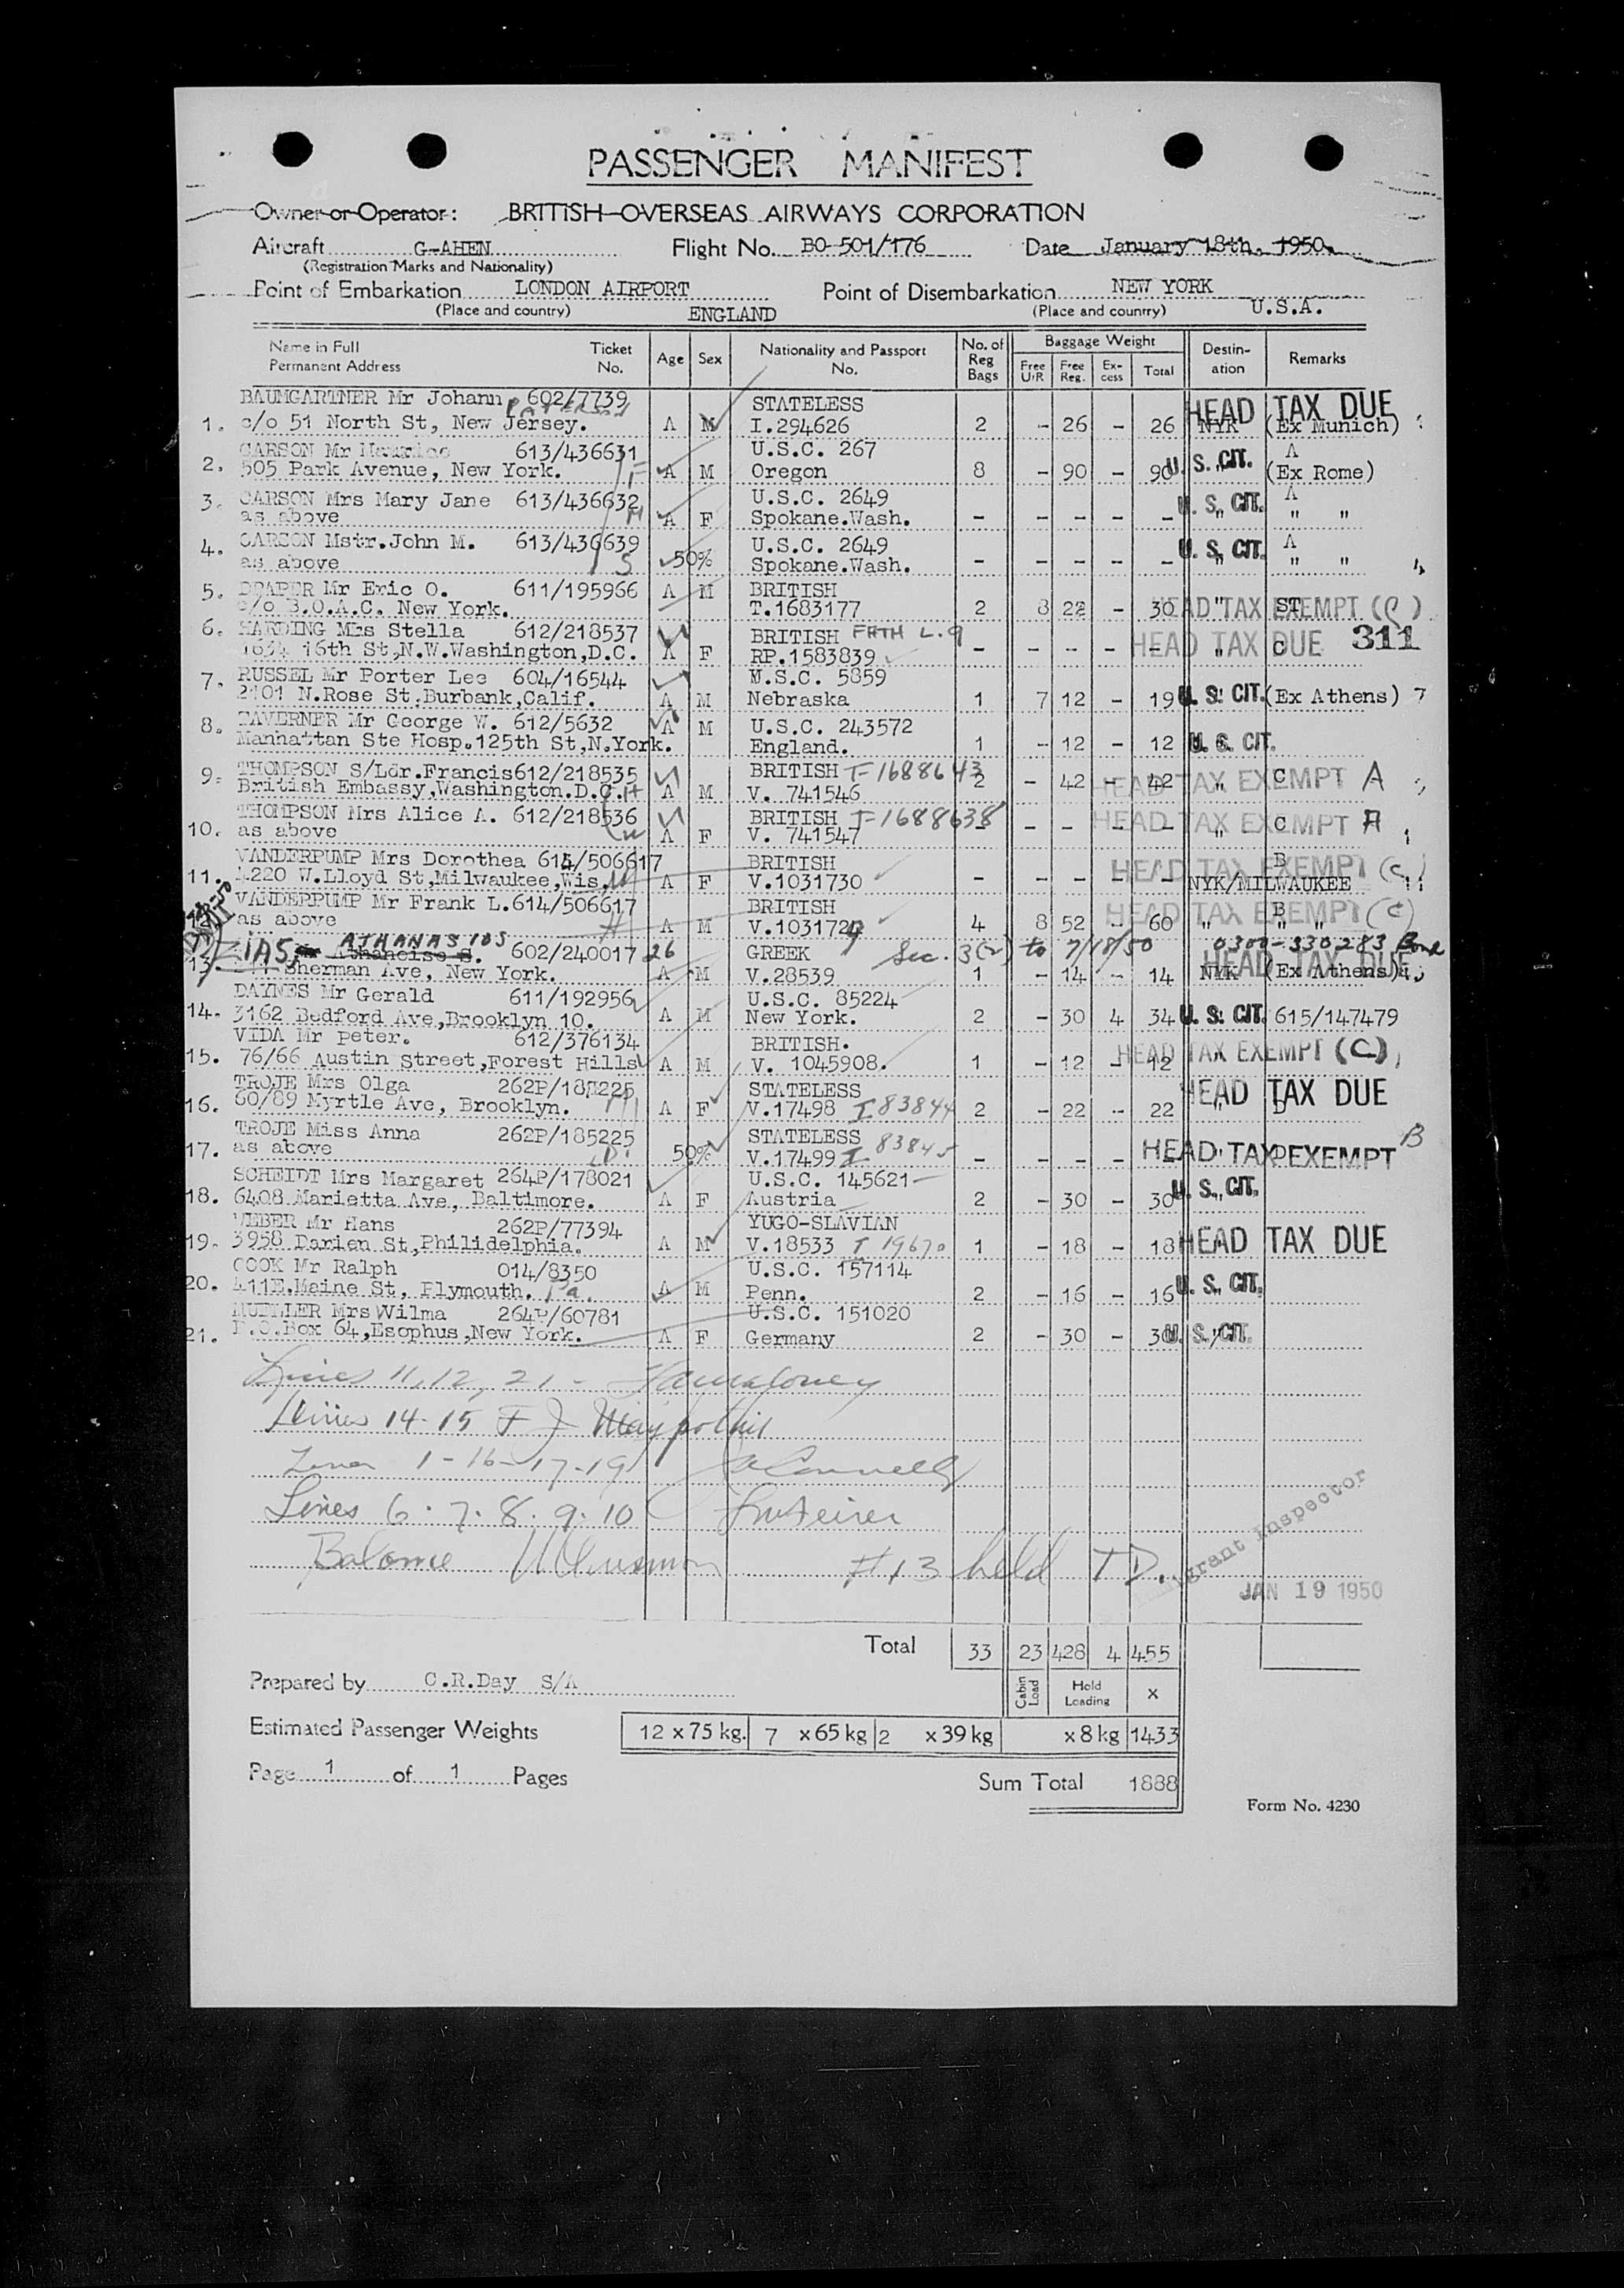 PASSENGER MANIFEST
Owner or Operator: BRITISH OVERSEAS AIRWAYS CORPORATION
Aircraft G-AHEN Flight No. BO 501/176 Date January 18th. 1950.
(Registration Marks and Nationality)
Point of Embarkation LONDON AIRPORT Point of Disembarkation NEW YORK
(Place and country) ENGLAND (Place and country) U.S.A.
Name in Full Permanent Address Ticket No. Age Sex Nationality and Passport No. No. of Reg Bags Baggage Weight Free U/R Free Reg. Ex-cess Total Destin-ation Remarks
BAUMGARTNER Mr Johann 602/7739 STATELESS HEAD TAX DUE
1. c/o 51 North St, New Jersey. A M I.294626 2 - 26 - 26 NYK (Ex Munich)
CARSON Mr 613/436631 U.S.C. 267 A
2. 505 Park Avenue, New York. F A M Oregon 8 - 90 - 90 U.S. CIT. (Ex Rome)
3. CARSON Mrs Mary Jane 613/436632 U.S.C. 2649 U.S. CIT. A
as above M A F Spokane.Wash. - - - - - " " "
4. CARSON Mstr.John M. 613/436639 U.S.C. 2649 U.S. CIT. A
as above S 50% Spokane.Wash. - - - - - " " "
5. DRAPER Mr Eric O. 611/195966 A M BRITISH
c/o B.O.A.C. New York. T.1683177 2 8 22 - 30 " ST HEAD TAX EXEMPT (C)
6. HARDING Mrs Stella 612/218537 BRITISH L.9
1634 16th St,N.W.Washington,D.C. A F RP.1583839 - - - - - " C HEAD TAX DUE 311
7. RUSSEL Mr Porter Lee 604/16544 U.S.C. 5859
2101 N.Rose St.Burbank,Calif. A M Nebraska 1 7 12 - 19 U.S. CIT. (Ex Athens) 7
8. TAVERNER Mr George W. 612/5632 A M U.S.C. 243572
Manhattan Ste Hosp.125th St,N.York. England. 1 - 12 - 12 U.S. CIT.
9. THOMPSON S/Ldr.Francis 612/218535 BRITISH T-1688643
British Embassy,Washington.D.C. H A M V. 741546 2 - 42 - 42 " C HEAD TAX EXEMPT A
THOMPSON Mrs Alice A. 612/218536 BRITISH T-1688638
10. as above W A F V. 741547 - - - - - " C HEAD TAX EXEMPT A
VANDERPUMP Mrs Dorothea 614/506617 BRITISH B HEAD TAX EXEMPT (C)
11. 4220 W.Lloyd St,Milwaukee,Wis. W A F V.1031730 - - - - - NYK/MILWAUKEE
VANDERPUMP Mr Frank L. 614/506617 BRITISH B HEAD TAX EXEMPT (C)
as above H A M V.1031729 4 8 52 - 60 " " "
ATHANASIOS 602/240017 26 GREEK Sec. 3(2) to 7/18/50 0300-330283
13. Sherman Ave, New York. A M V.28539 1 - 14 - 14 NYK (Ex Athens) HEAD TAX DUE
DAYNES Mr Gerald 611/192956 U.S.C. 85224
14. 3162 Bedford Ave,Brooklyn 10. A M New York. 2 - 30 4 34 U.S. CIT. 615/147479
VIDA Mr Peter. 612/376134 BRITISH.
15. 76/66 Austin Street,Forest Hills A M V. 1045908. 1 - 12 - 12 HEAD TAX EXEMPT (C)
TROJE Mrs Olga 262P/185225 STATELESS HEAD TAX DUE
16. 60/89 Myrtle Ave, Brooklyn. M A F V.17498 I 83844 2 - 22 - 22 "
TROJE Miss Anna 262P/185225 STATELESS
17. as above D. 50% V.17499 I 83845 - - - - HEAD TAX EXEMPT B
SCHEIDT Mrs Margaret 264P/178021 U.S.C. 145621
18. 6408 Marietta Ave., Baltimore. A F Austria 2 - 30 - 30 U.S. CIT.
WEBER Mr Hans 262P/77394 YUGO-SLAVIAN
19. 3958 Darien St,Philidelphia. A M V.18533 I 19670 1 - 18 - 18 HEAD TAX DUE
COOK Mr Ralph 014/8350 U.S.C. 157114
20. 411E.Maine St, Plymouth. Pa. A M Penn. 2 - 16 - 16 U.S. CIT.
MUELLER Mrs Wilma 264P/60781 U.S.C. 151020
21. P.O.Box 64,Esophus,New York. A F Germany 2 - 30 - 30 U.S. CIT.
Lines 11, 12, 21 -
Lines 14-15 F J
Lines 1-16-17-19
Lines 6. 7. 8. 9. 10
Balance #13 held T D.
Immigrant Inspector
JAN 19 1950
Total 33 23 428 4 455
Prepared by C.R.Day S/A Cabin Load Hold Loading x
Estimated Passenger Weights 12 x 75 kg. 7 x 65 kg 2 x 39 kg x 8 kg 1433
Page 1 of 1 Pages Sum Total 1888
Form No. 4230